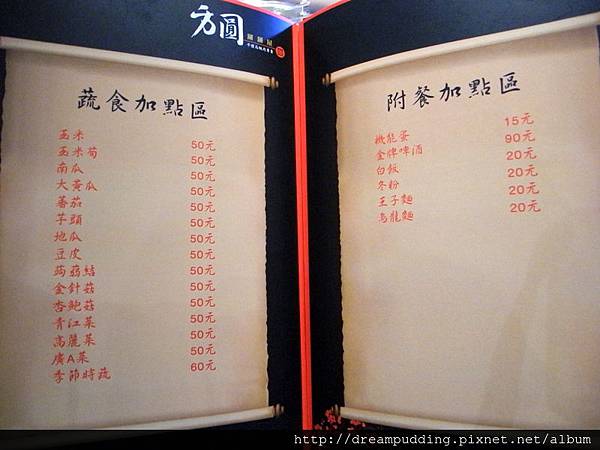 方圓
蔬食加點區
玉米 50元
玉米筍 50元
南瓜 50元
大黃瓜 50元
蕃茄 50元
芋頭 50元
地瓜 50元
豆皮 50元
蒟蒻結 50元
金針菇 50元
杏鮑菇 50元
青江菜 50元
高麗菜 50元
廣A菜 50元
季節時蔬 60元
附餐加點區
機能蛋 15元
金牌啤酒 90元
白飯 20元
冬粉 20元
王子麵 20元
烏龍麵 20元
http://dreampudding.pixnet.net/album